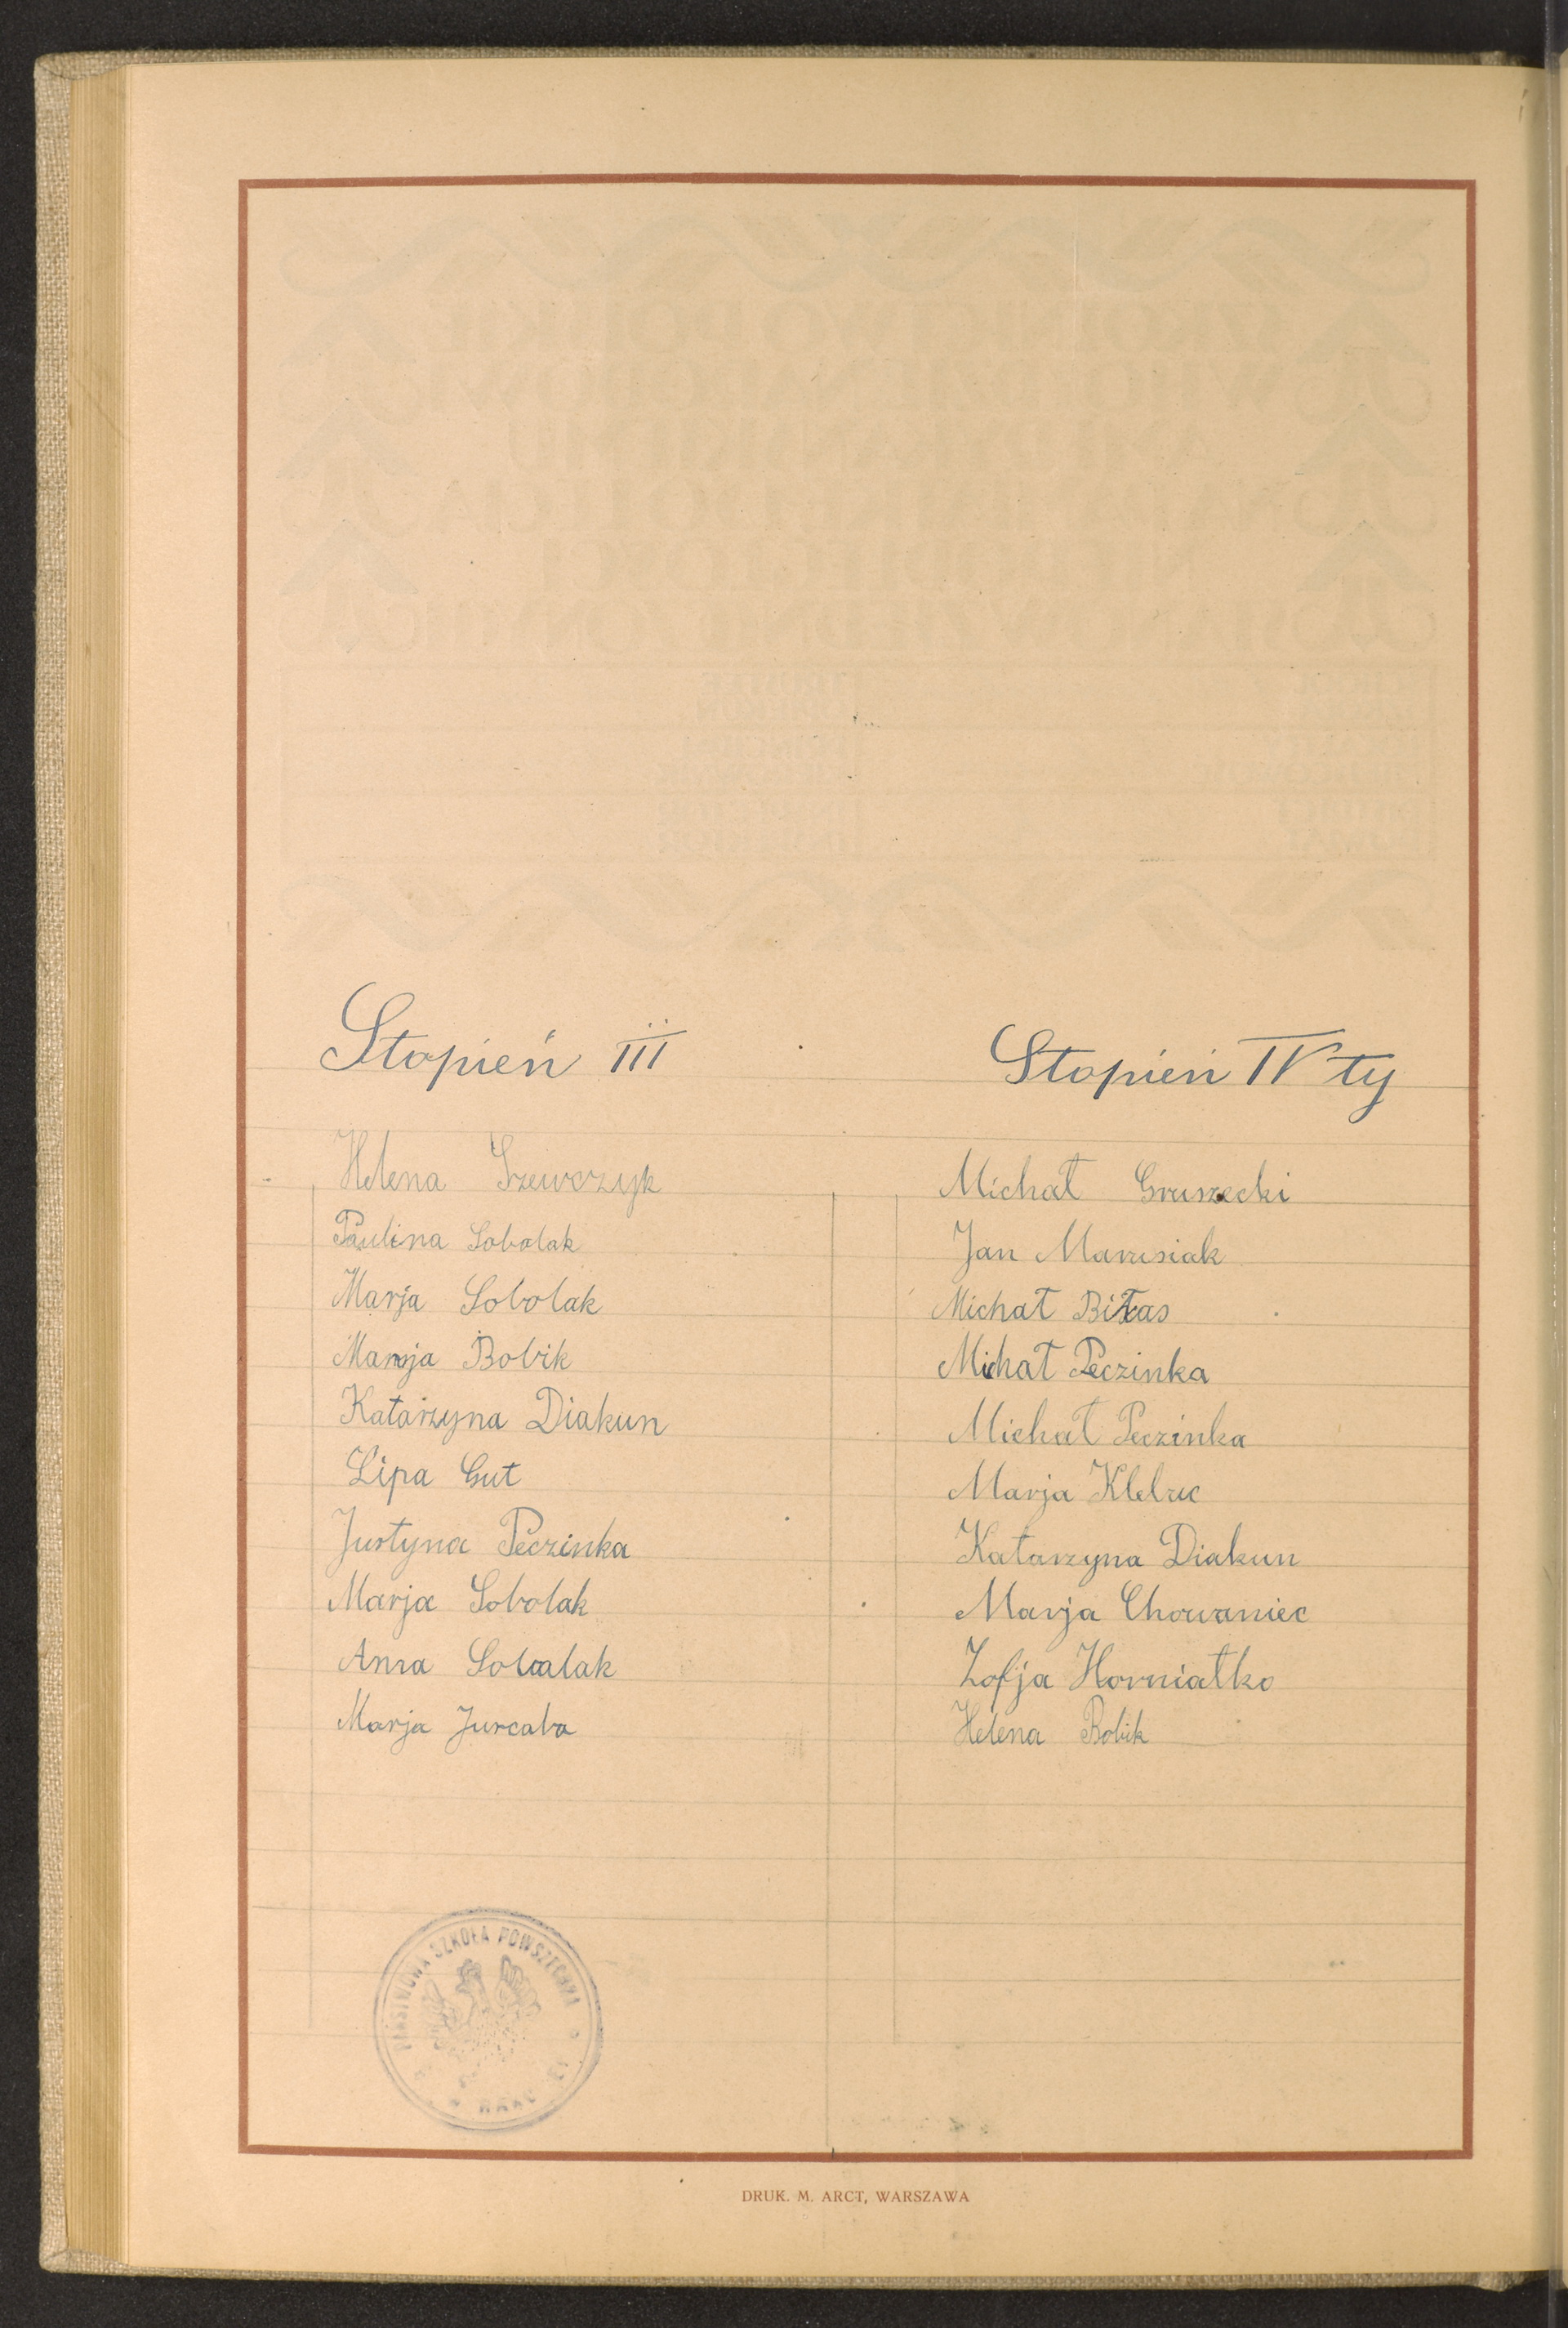 Stopień III
Helena Szewczyk
Paulina Sobolak
Marja Sobolak
Marja Bobik
Katarzyna Diakun
Lipa Gut
Justyna Peczinka
Marja Sobolak
Anna Sobolak
Marja Jurcaba
Stopień IV ty
Michał Gruszecki
Jan Marusiak
Michał Biłas
Michał Peczinka
Michał Peczinka
Marja
Katarzyna Diakun
Marja Chowaniec
Zofja Horniatko
Helena Bobik
PAŃSTWOWA SZKOŁA POWSZECHNA
DRUK. M. ARCT, WARSZAWA